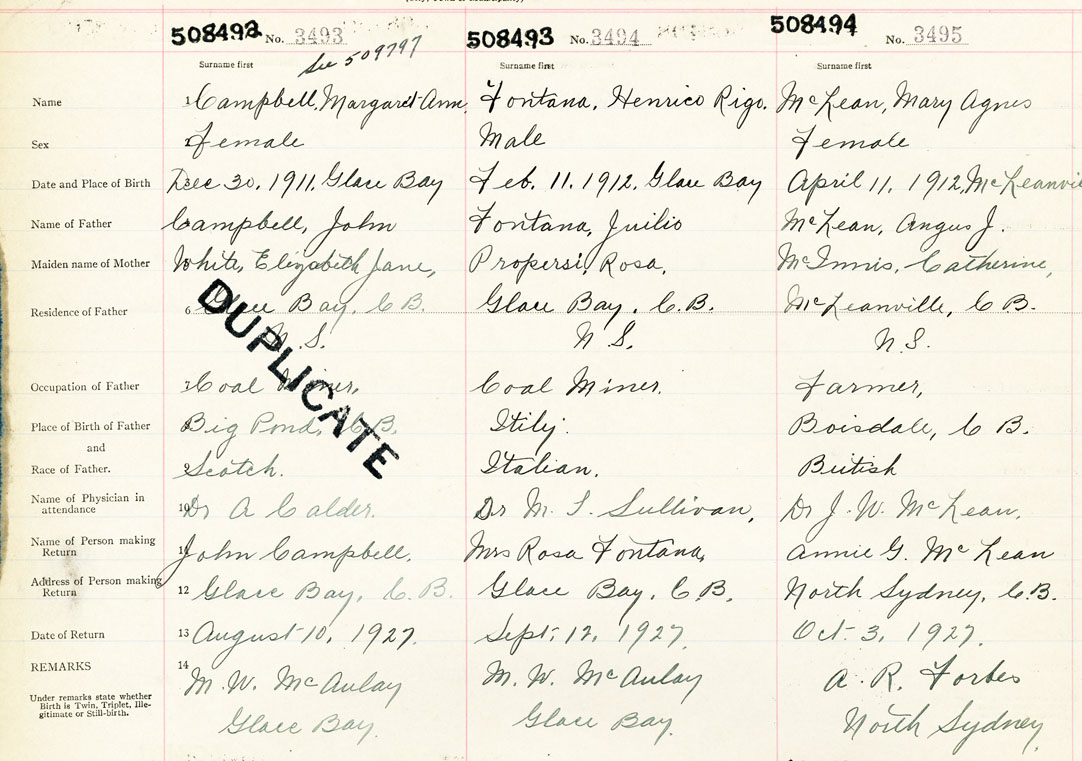 508492 No. 3493
See 509797
Surname first
508493 No. 3494
Surname first
508494 No. 3495
Surname first
Name 1 Campbell, Margaret Ann Fontana, Henrico Rigo. McLean, Mary Agnes
Sex 2 Female Male Female
Date and Place of Birth Dec 30, 1911, Glace Bay Feb. 11. 1912, Glace Bay April 11, 1912, McLeanvi
Name of Father Campbell, John Fontana, Juilio McLean, Angus J.
Maiden name of Mother White, Elizabeth Jane, Propersi, Rosa, McInnis, Catherine,
Residence of Father 6 Glace Bay, C B. Glace Bay, C.B. McLeanville, C B.
N.S. N.S. N.S.
DUPLICATE
Occupation of Father 7 Coal Miner, Coal Miner. Farmer,
Place of Birth of Father 8 Big Pond, C.B. Itily. Boisdale, C B.
and
Race of Father. 9 Scotch. Italian. British
Name of Physician in
attendance 10 Dr A Calder. Dr M. T. Sullivan, Dr J. W. McLean.
Name of Person making
Return 11 John Campbell. Mrs Rosa Fontana, Annie G. McLean
Address of Person making
Return 12 Glace Bay, C.B. Glace Bay, C.B, North Sydney, C.B.
Date of Return 13 August 10, 1927. Sept. 12, 1927 Oct. 3, 1927.
REMARKS 14 M. W. McAulay M. W. McAulay A. R. Forbes
Under remarks state whether
Birth is Twin, Triplet, Ille-
gitimate or Still-birth.
Glace Bay. Glace Bay. North Sydney,